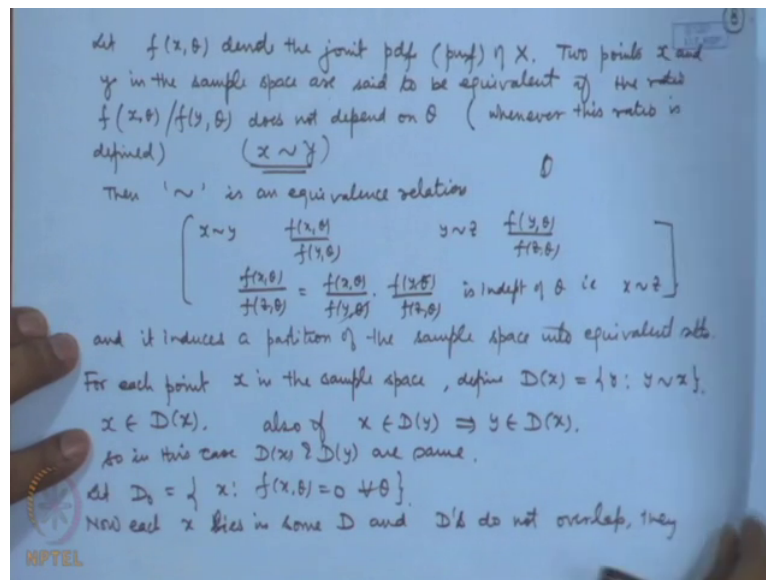 8
Let f(x, θ) denote the joint pdf (pmf) of X. Two points x and
y in the sample space are said to be equivalent if the ratio
f(x,θ)/f(y,θ) does not depend on θ (whenever this ratio is
defined) (x ~ y)
Then '~' is an equivalence relation
[ x~y f(x,θ)/f(y,θ) y~z f(y,θ)/f(z,θ)
f(x,θ)/f(z,θ) = f(x,θ)/f(y,θ) . f(y,θ)/f(z,θ) is indept of θ ie x~z ]
and it induces a partition of the sample space into equivalent sets.
For each point x in the sample space, define D(x) = {y: y~x}.
x ∈ D(x). also if x ∈ D(y) ⇒ y ∈ D(x).
so in this case D(x) & D(y) are same.
Let D₀ = { x: f(x,θ)=0 ∀ θ}.
Now each x lies in some D and D's do not overlap, they
NPTEL